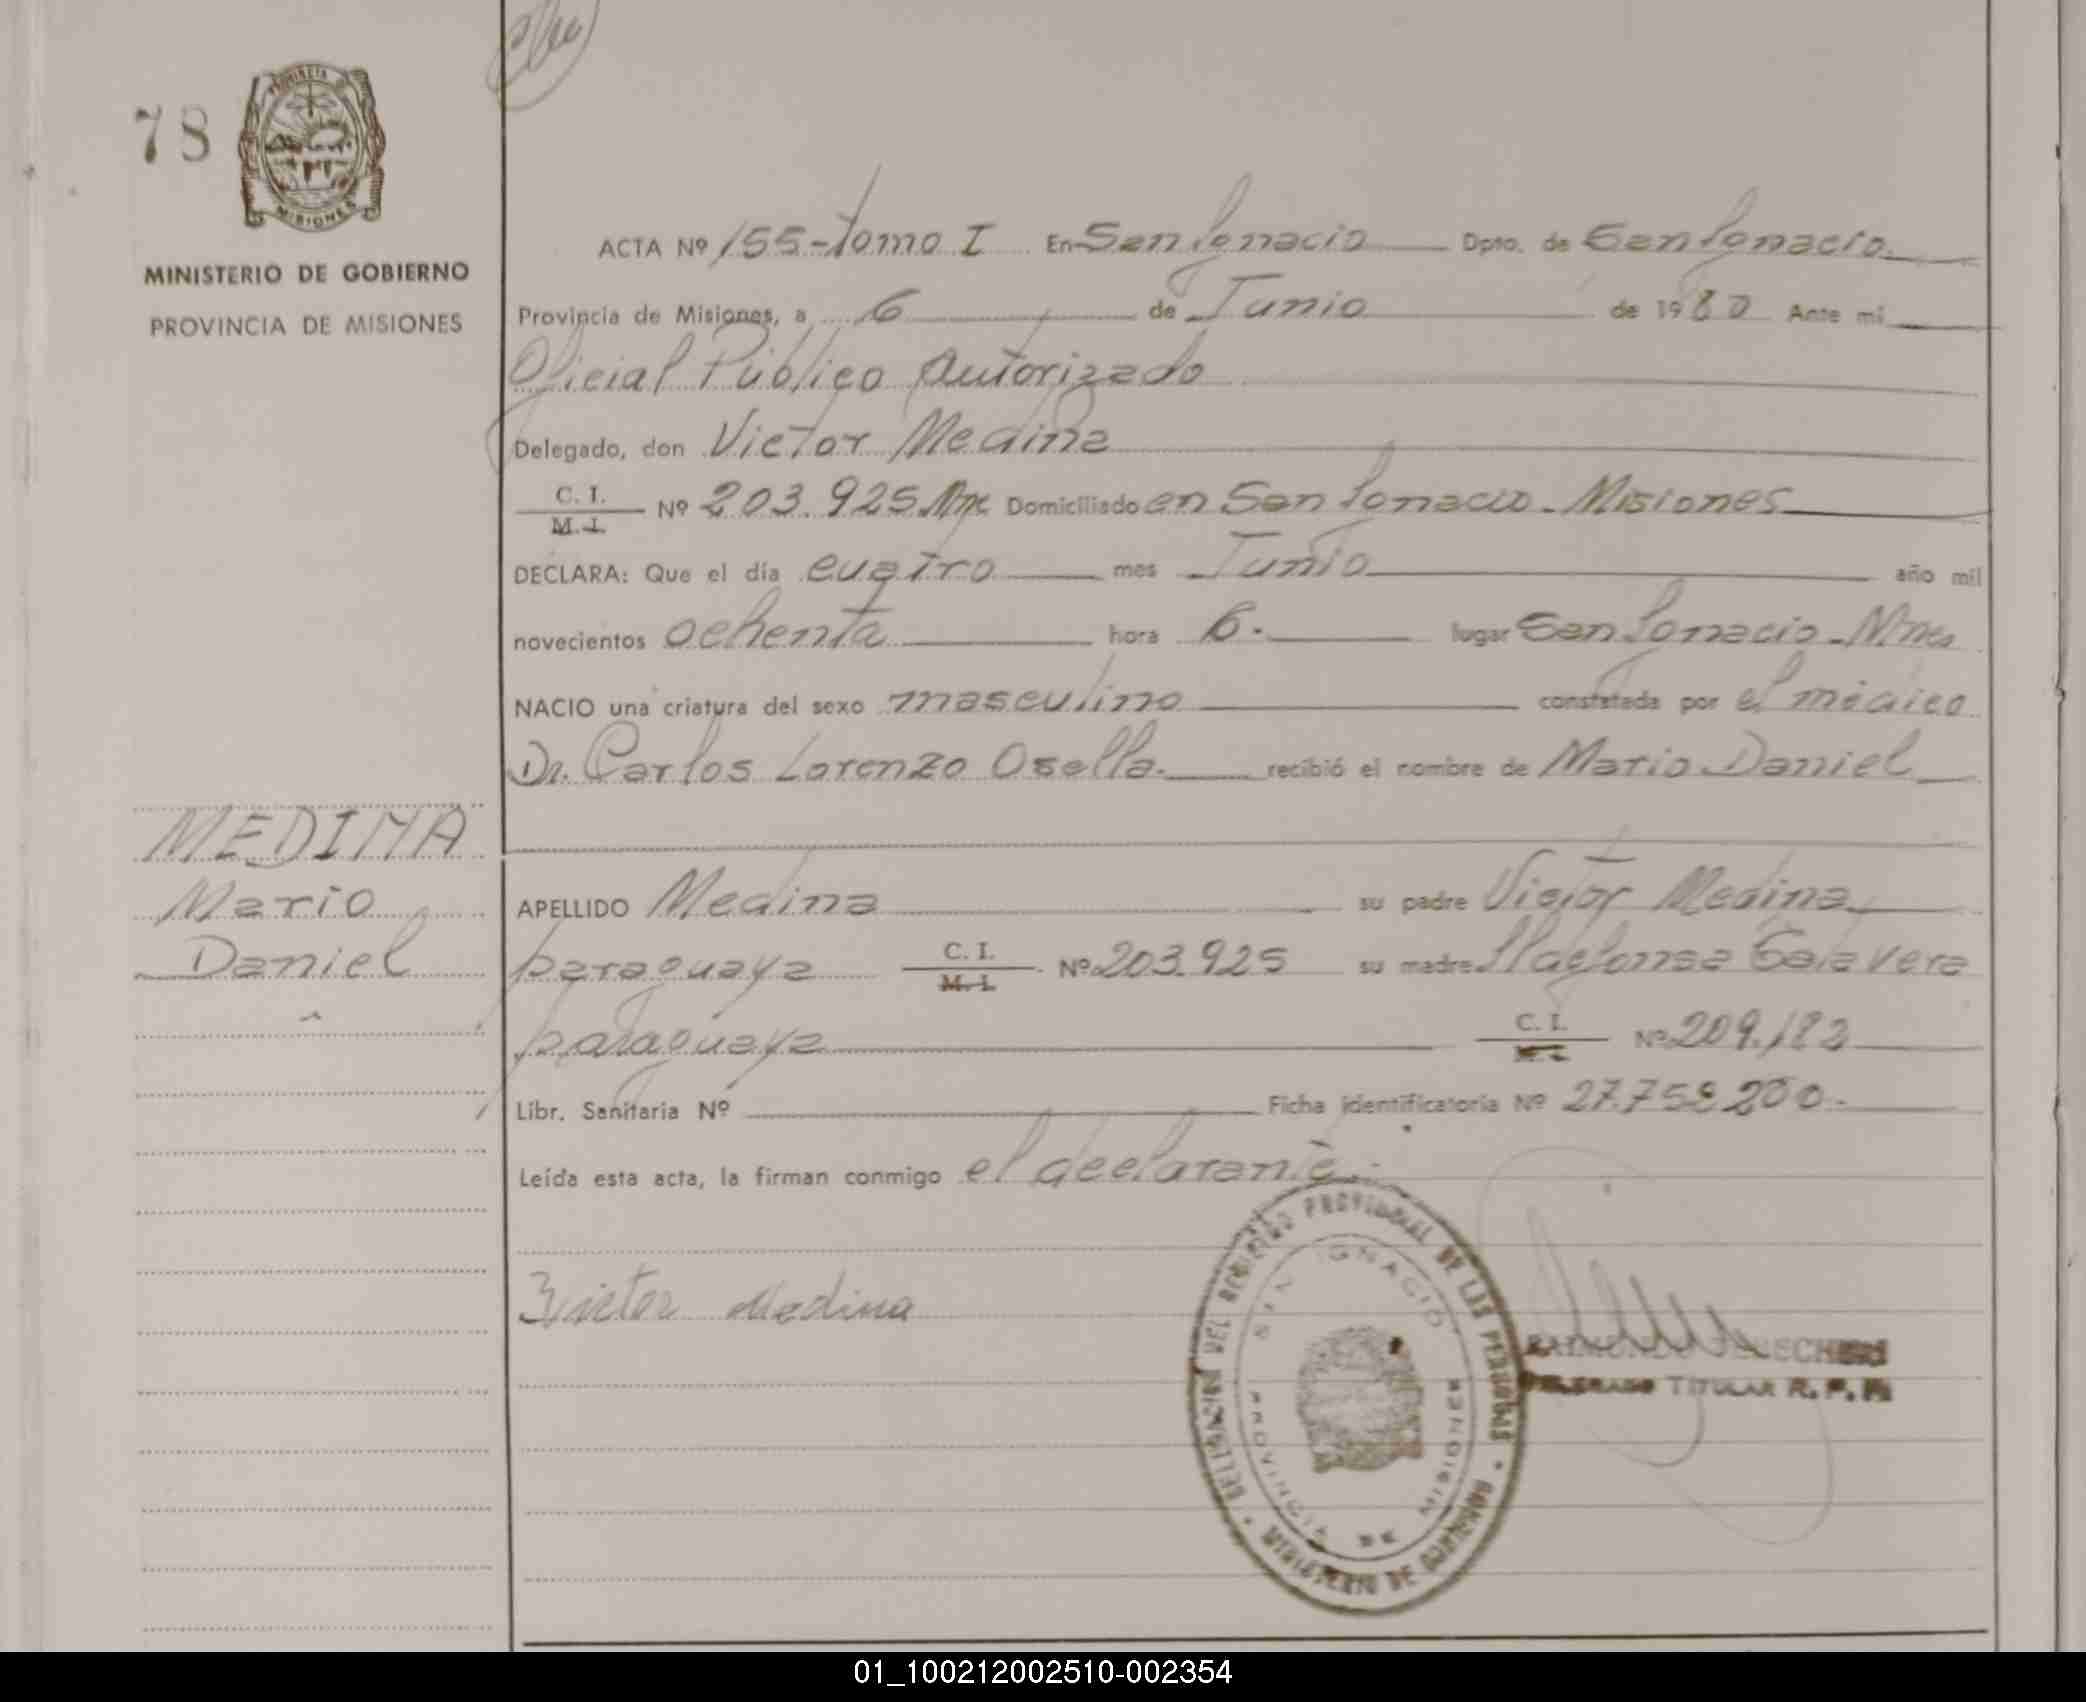 78
PROVINCIA DE
MISIONES
MINISTERIO DE GOBIERNO
PROVINCIA DE MISIONES
ACTA Nº 155-tomo I En San Ignacio Dpto. de San Ignacio.
Provincia de Misiones, a 6 de Junio de 1980 Ante mi
Oficial Público Autorizado
Delegado, don Victor Medina
C. I.
M. I. Nº 203.925 Mnes Domiciliado en San Ignacio - Misiones
DECLARA: Que el día cuatro mes Junio año mil
novecientos ochenta hora 6. lugar San Ignacio - Mnes
NACIO una criatura del sexo masculino constatada por el médico
Dr. Carlos Lorenzo Osella. recibió el nombre de Mario Daniel
MEDINA
Mario
Daniel
APELLIDO Medina su padre Victor Medina
paraguaya C. I. M. I. Nº 203.925 su madre Ildefonsa Talavera
paraguaya C. I. M. I. Nº 209.182
Libr. Sanitaria Nº Ficha identificatoria Nº 27.758.200.
Leída esta acta, la firman conmigo el declarante.
Victor Medina
DELEGACION DEL REGISTRO PROVINCIAL DE LAS PERSONAS
SAN IGNACIO
PROVINCIA DE MISIONES
MINISTERIO DE GOBIERNO
DELEGADO TITULAR R. P. P.
01_100212002510-002354